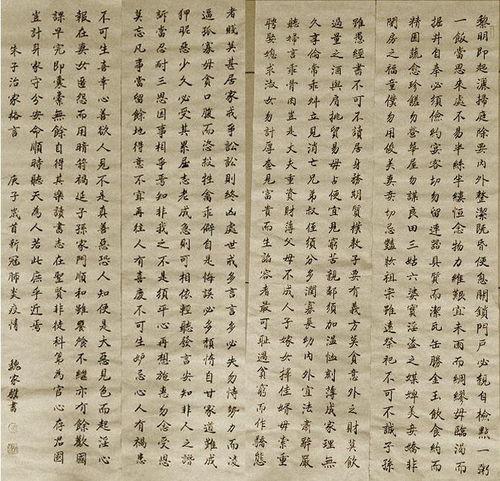 黎明即起灑掃庭除要內外整潔既昏便息關鎖門戶必親自檢點一粥
一飯當思來處不易半絲半縷恒念物力維艱宜未雨而綢繆毋臨渴而
掘井自奉必須儉約宴客切勿留連器具質而潔瓦缶勝金玉飲食約而
精園蔬愈珍饈勿營華屋勿謀良田三姑六婆實淫盜之媒婢美妾嬌非
閨房之福童僕勿用俊美妻妾切忌艷妝祖宗雖遠祭祀不可不誠子孫
雖愚經書不可不讀居身務期質樸教子要有義方莫貪意外之財莫飲
過量之酒與肩挑貿易毋占便宜見窮苦親鄰須加溫恤刻薄成家理無
久享倫常乖舛立見消亡兄弟叔侄須分多潤寡長幼內外宜法肅辭嚴
聽婦言乖骨肉豈是丈夫重資財薄父母不成人子嫁女擇佳婿毋索重
聘娶媳求淑女勿計厚奩見富貴而生諂容者最可恥遇貧窮而作驕態
者賤莫甚居家戒爭訟訟則終凶處世戒多言言多必失勿恃勢力而凌
逼孤寡毋貪口腹而恣殺牲禽乖僻自是悔誤必多頹惰自甘家道難成
狎昵惡少久必受其累屈志老成急則可相依輕聽發言安知非人之譖
訴當忍耐三思因事相爭焉知非我之不是須平心再想施惠勿念受恩
莫忘凡事當留餘地得意不宜再往人有喜慶不可生妒忌心人有禍患
不可生喜幸心善欲人見不是真善惡恐人知便是大惡見色而起淫心
報在妻女匿怨而用暗箭禍延子孫家門順和雖饔飧不繼亦有餘歡國
課早完即囊橐無餘自得其樂讀書志在聖賢非徒科第為官心存君國
豈計身家守分安命順時聽天為人若此庶乎近焉
朱子治家格言 庚子歲首新冠肺炎疫情 魏家 書